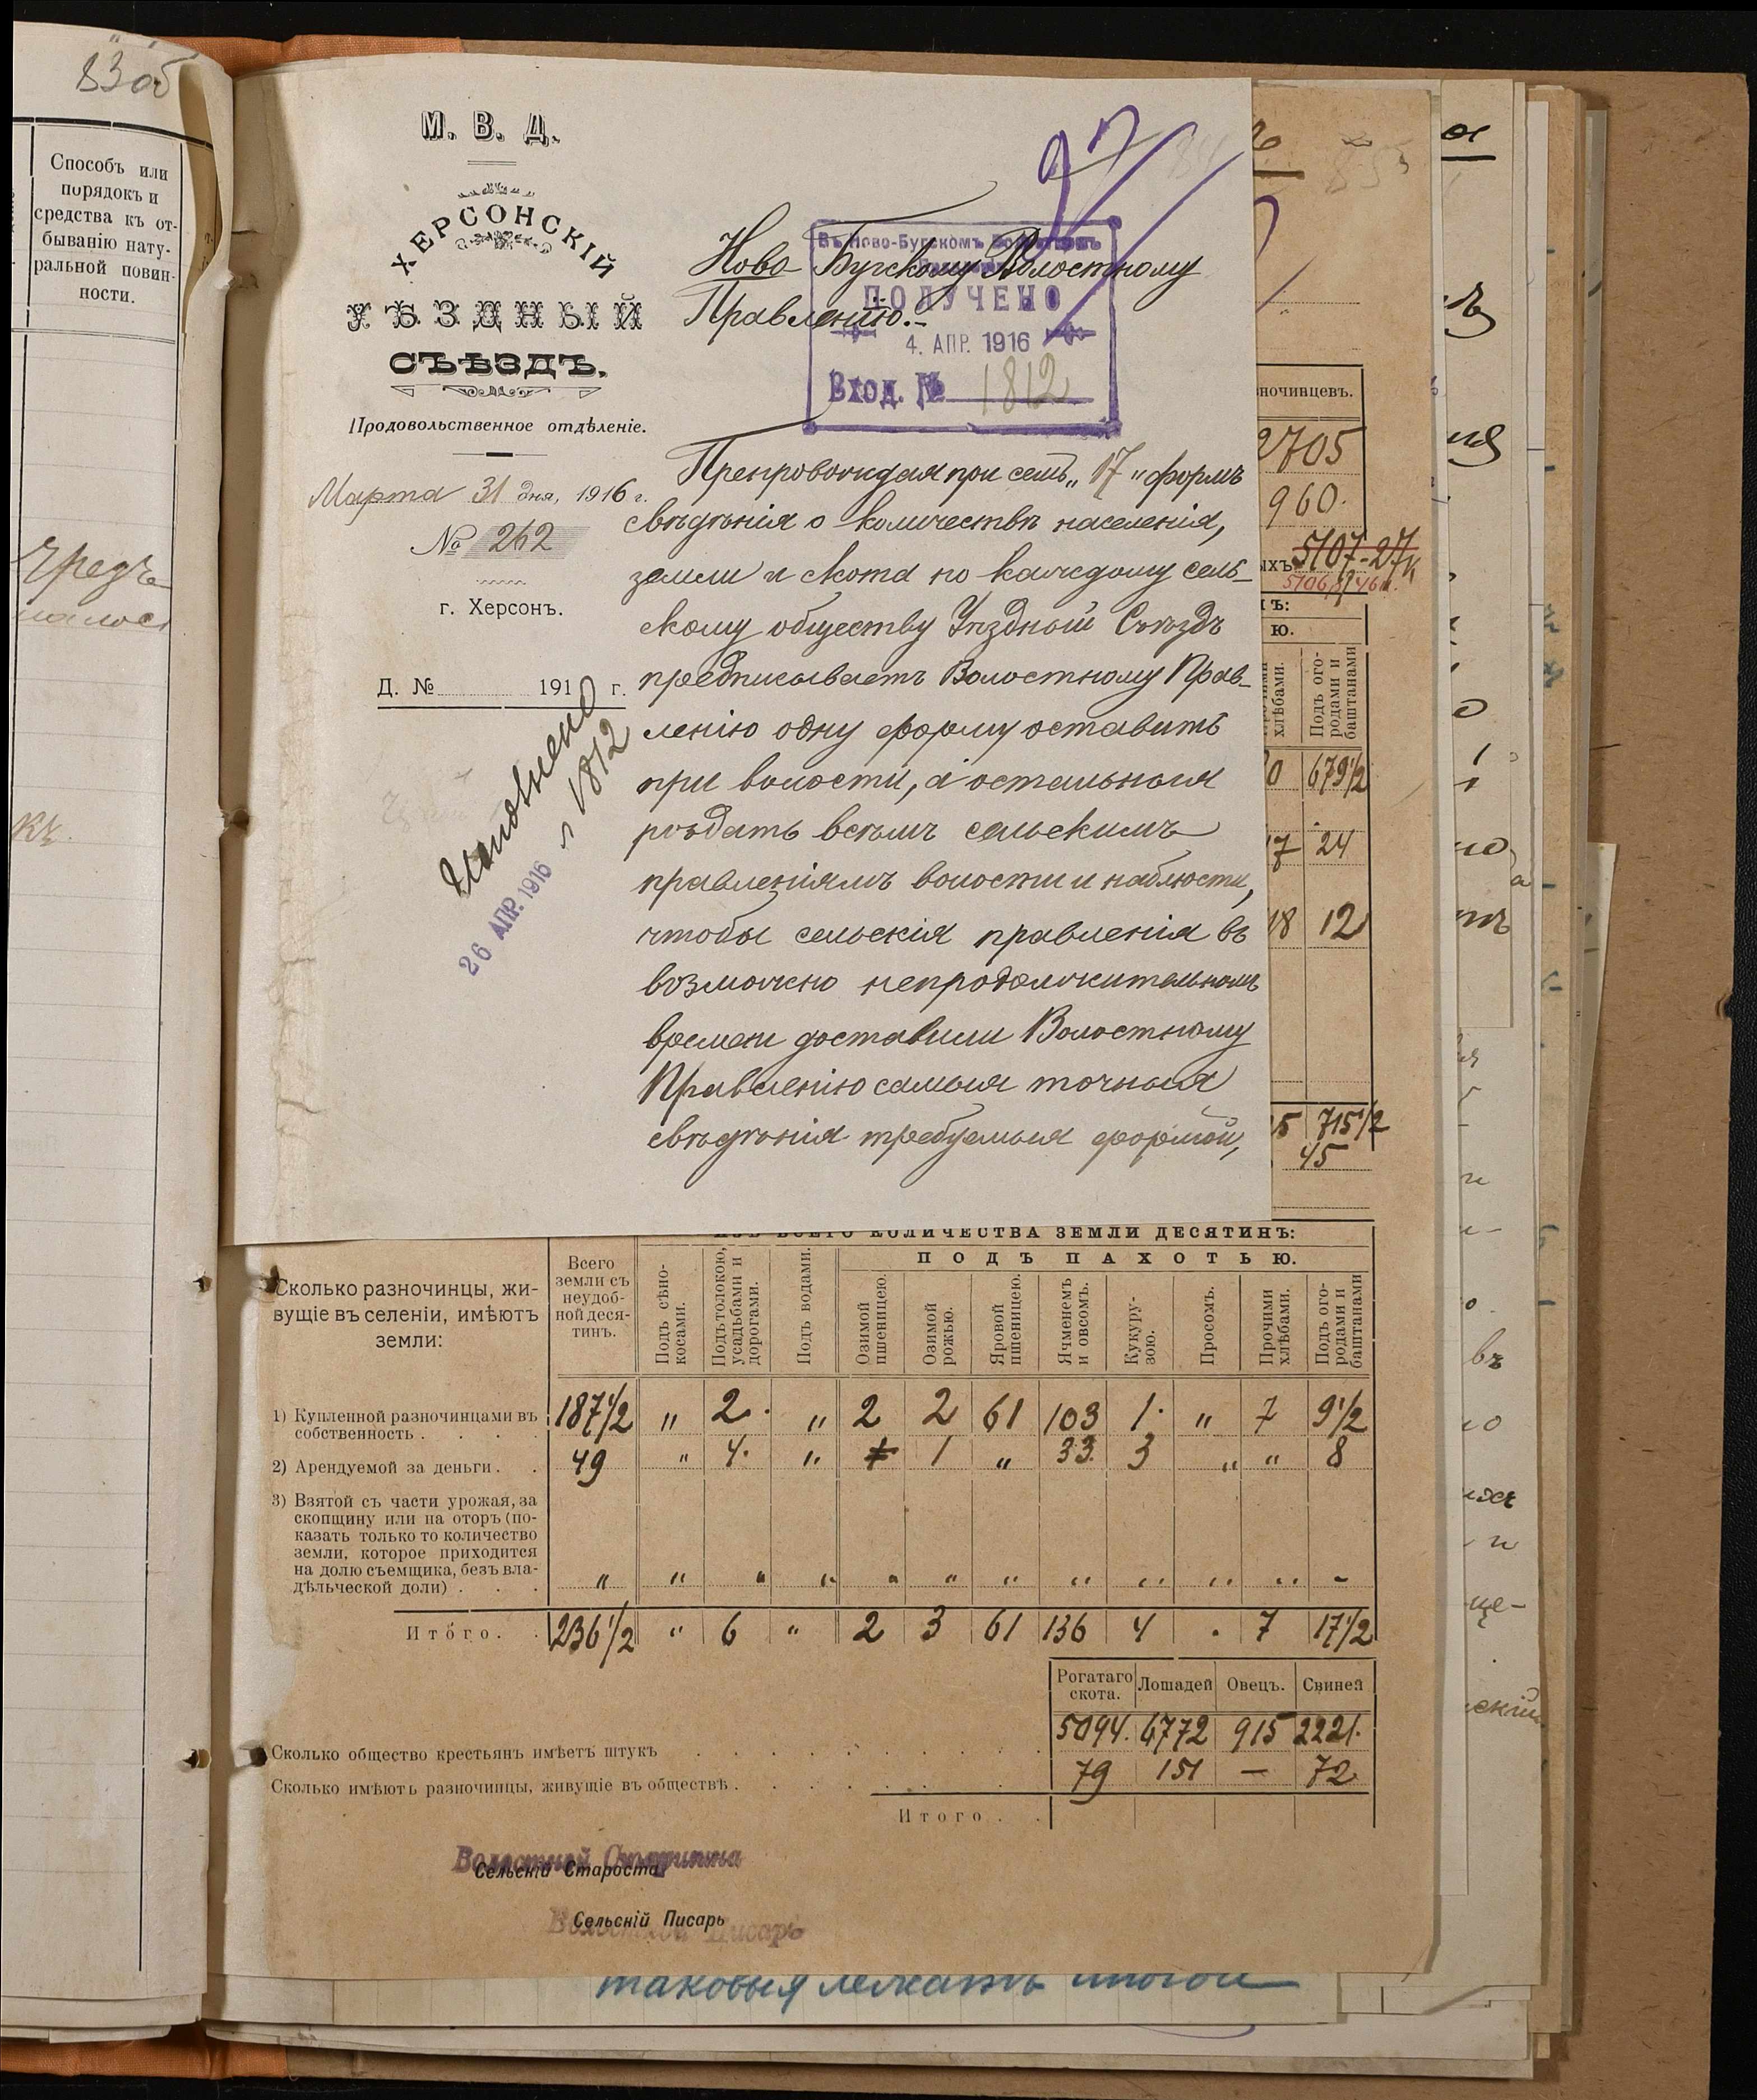 83 об
Способъ или
порядокъ и
средства къ от-
быванію нату-
ральной повин-
ности.
М. В. Д.
ХЕРСОНСКІЙ
УѢЗДНЫЙ
СЪѢЗДЪ.
Продовольственное отдѣленіе.
Марта 31 дня, 1916 г.
№ 262
г. Херсонъ.
Д. № 191 г.
Исполнено
1812
26 АПР. 1916
97
Ново-Бугскому Волостному
Правленію.-
Въ Ново-Бугскомъ
ПОЛУЧЕНО
4. АПР. 1916
Вход. № 1812
Препровождая при семъ „17“ формъ
свѣдѣнія о количествѣ населенія,
земли и скота по каждому сель-
скому обществу Уѣздный Съѣздъ
предписываетъ Волостному Прав-
ленію одну форму оставить
при волости, а остальныя
роздать всѣмъ сельскимъ
правленіямъ волости и наблюсти,
чтобы сельскія правленія въ
возможно непродолжительномъ
времени доставили Волостному
Правленію самыя точныя
свѣдѣнія требуемыя формой,
ночинцевъ.
2705
960.
ыхъ 5107-27к
5106 р 46к.
Ъ:
Ю.
хлѣбами.
Подъ ого-
родами и
баштанами
0 679 1/2
7 24
18 12
5 715 1/2
45
КОЛИЧЕСТВА ЗЕМЛИ ДЕСЯТИНЪ:
ПОДЪ ПАХОТЬЮ.
Сколько разночинцы, жи-
вущіе въ селеніи, имѣютъ
земли:
Всего
земли съ
неудоб-
ной деся-
тинъ.
Подъ сѣно-
косами.
Подъ толокою,
усадьбами и
дорогами.
Подъ водами.
Озимой
пшеницею.
Озимой
рожью.
Яровой
пшеницею.
Ячменемъ
и овсомъ.
Кукуру-
зою.
Просомъ.
Прочими
хлѣбами.
Подъ ого-
родами и
баштанами
1) Купленной разночинцами въ
собственность . . . . 187 1/2 „ 2. „ 2 2 61 103 1. „ 7 9 1/2
2) Арендуемой за деньги. . 49 „ 4. „ 1 „ 33. 3 „ „ 8
3) Взятой съ части урожая, за
скопщину или на оторъ (по-
казать только то количество
земли, которое приходится
на долю съемщика, безъ вла-
дѣльческой доли) . . . „ „ „ „ „ „ „ „ „ „ „ -
Итого. . 236 1/2 „ 6 „ 2 3 61 136 4 . 7 17 1/2
Рогатаго
скота. Лошадей Овецъ. Свиней
Сколько общество крестьянъ имѣетъ штукъ 5094. 4772 915 2221.
Сколько имѣютъ разночинцы, живущіе въ обществѣ. 79 151 — 72
Итого . .
Волостной Старшина
Сельскій Староста
Сельскій Писарь
Волостной Писарь
таковыя лежатъ